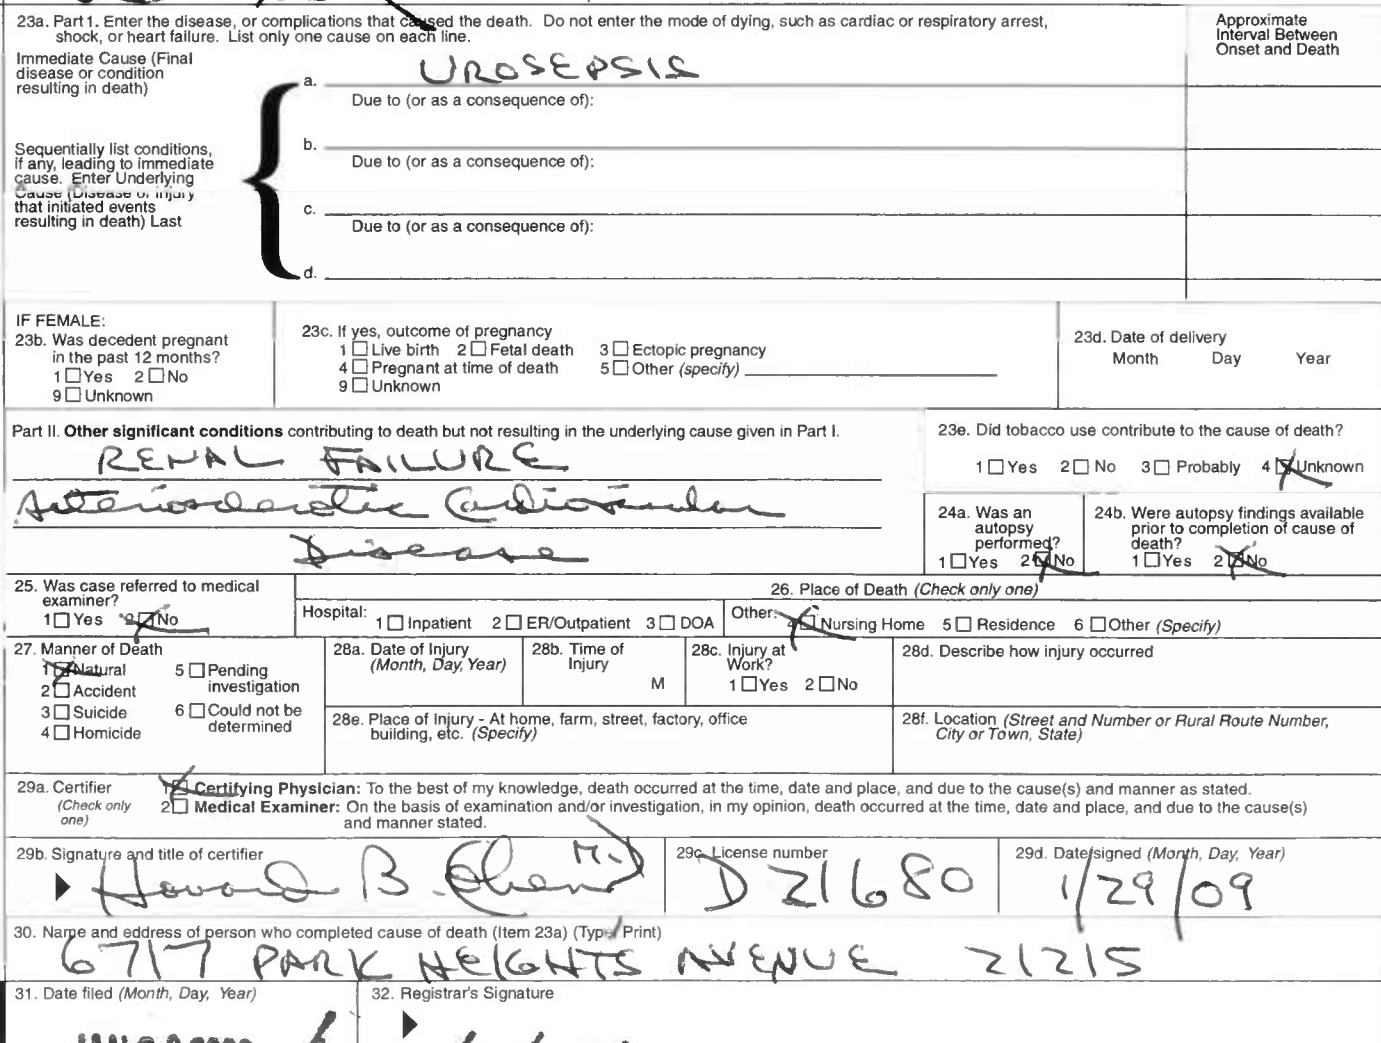 23a. Part 1. Enter the disease, or complications that caused the death. Do not enter the mode of dying, such as cardiac or respiratory arrest,
shock, or heart failure. List only one cause on each line.
Approximate
Interval Between
Onset and Death
Immediate Cause (Final
disease or condition
resulting in death)
a. UROSEPSIS
Due to (or as a consequence of):
Sequentially list conditions,
if any, leading to immediate
cause. Enter Underlying
Cause (Disease or injury
that initiated events
resulting in death) Last
b.
Due to (or as a consequence of):
c.
Due to (or as a consequence of):
d.
IF FEMALE:
23b. Was decedent pregnant
in the past 12 months?
1 ☐ Yes 2 ☐ No
9 ☐ Unknown
23c. If yes, outcome of pregnancy
1 ☐ Live birth 2 ☐ Fetal death 3 ☐ Ectopic pregnancy
4 ☐ Pregnant at time of death 5 ☐ Other (specify)
9 ☐ Unknown
23d. Date of delivery
Month Day Year
Part II. Other significant conditions contributing to death but not resulting in the underlying cause given in Part I.
RENAL FAILURE
Arteriosclerotic Cardiovascular
Disease
23e. Did tobacco use contribute to the cause of death?
1 ☐ Yes 2 ☐ No 3 ☐ Probably 4 ☒ Unknown
24a. Was an
autopsy
performed?
1 ☐ Yes 2 ☒ No
24b. Were autopsy findings available
prior to completion of cause of
death?
1 ☐ Yes 2 ☒ No
25. Was case referred to medical
examiner?
1 ☐ Yes 2 ☒ No
26. Place of Death (Check only one)
Hospital: 1 ☐ Inpatient 2 ☐ ER/Outpatient 3 ☐ DOA Other: 4 ☒ Nursing Home 5 ☐ Residence 6 ☐ Other (Specify)
27. Manner of Death
1 ☒ Natural
2 ☐ Accident
3 ☐ Suicide
4 ☐ Homicide
5 ☐ Pending
investigation
6 ☐ Could not be
determined
28a. Date of Injury
(Month, Day, Year)
28b. Time of
Injury
M
28c. Injury at
Work?
1 ☐ Yes 2 ☐ No
28d. Describe how injury occurred
28e. Place of Injury - At home, farm, street, factory, office
building, etc. (Specify)
28f. Location (Street and Number or Rural Route Number,
City or Town, State)
29a. Certifier
(Check only
one)
1 ☒ Certifying Physician: To the best of my knowledge, death occurred at the time, date and place, and due to the cause(s) and manner as stated.
2 ☐ Medical Examiner: On the basis of examination and/or investigation, in my opinion, death occurred at the time, date and place, and due to the cause(s)
and manner stated.
29b. Signature and title of certifier
Howard B. M.D
29c. License number
D21680
29d. Date signed (Month, Day, Year)
1/29/09
30. Name and address of person who completed cause of death (Item 23a) (Type Print)
6717 PARK HEIGHTS AVENUE 21215
31. Date filed (Month, Day, Year)
32. Registrar's Signature